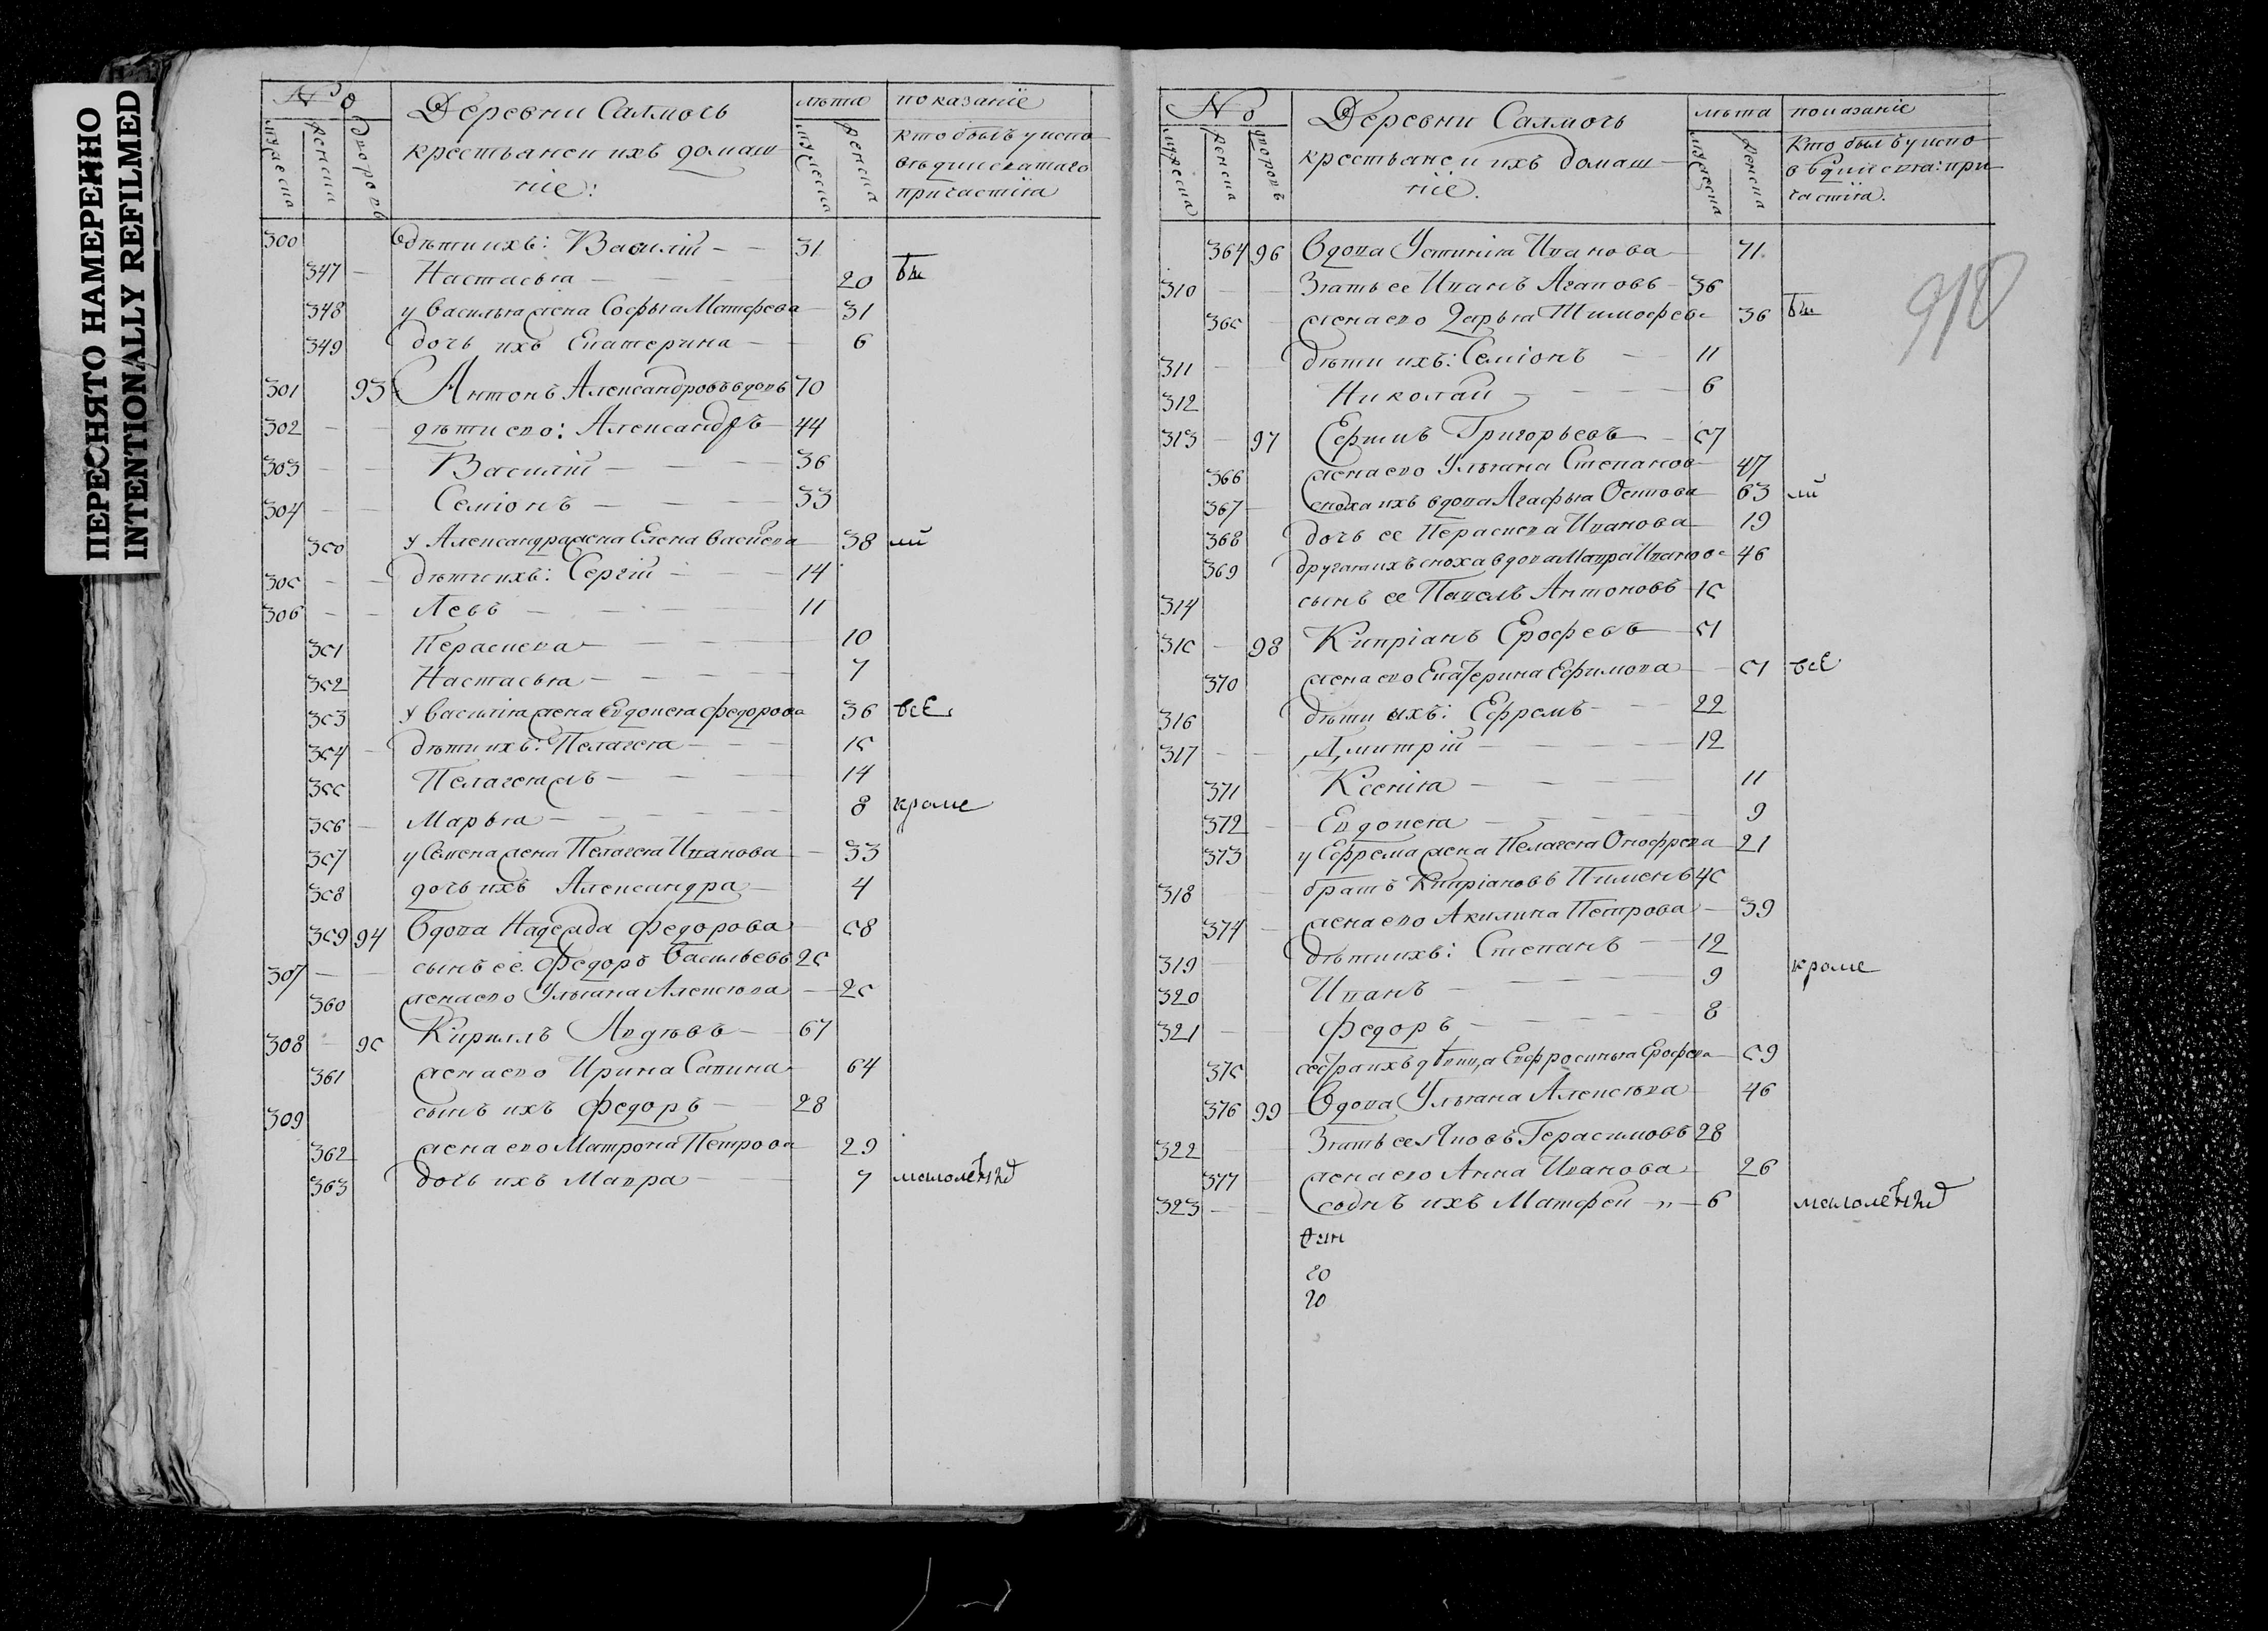 ПЕРЕСНЯТО НАМЕРЕННО
INTENTIONALLY REFILMED
№
мужеска
женска
дворовъ
Деревни Салмочь
крестьяне и ихъ домаш
ніе:
лѣта
мужеска
женска
показаніе
кто былъ у испо
вѣди и святаго
причастія
300 дѣти ихъ: Василій 31
347 Настасья 20 бы
348 у Василья жена Софья Матфеева 31
349 дочь ихъ Екатерина 6
301 93 Антонъ Александровъ вдовъ 70
302 дѣти ево: Александръ 44
303 Василій 36
304 Семіонъ 33
350 у Александра жена Елена 38 ли
305 дѣти ихъ: Сергій 14
306 Левъ 11
351 Пераскева 10
352 Настасья 7
353 у Василія жена Евдокея Федорова 36 всѣ
354 дѣти ихъ: Пелагея 15
355 Пелагея жъ 14
356 Марья 8 кроме
357 у Семена жена Пелагея Иванова 33
358 дочь ихъ Александра 4
359 94 Вдова Надежда Федорова 58
307 сынъ ее Федоръ Васильевъ 25
360 жена ево Ульяна Алексѣева 25
308 95 Кириллъ Авдѣевъ 67
361 жена ево Ирина Савина 64
309 сынъ ихъ Федоръ 28
362 жена ево Матрона Петрова 29
363 дочь ихъ Мавра 7
№
мужеска
женска
дворовъ
Деревни Салмочь
крестьяне и ихъ домаш
ніе.
лѣта
мужеска
женска
показаніе
Кто былъ у испо
вѣди и свята: при
частія.
918
364 96 Вдова Устинія Иванова 71
310 Зять ее Иванъ Агаповъ 36
365 жена ево Дарья Тимофеев 36 бы
311 дѣти ихъ: Семіонъ 11
312 Николай 6
313 97 Ефимъ Григорьевъ 57
366 жена ево Ульяна Степанов 47
367 сноха ихъ вдова Агафья Осипова 63 ли
368 дочь ее Пераскева Иванова 19
369 другая ихъ сноха вдова Мавра Иванов 46
314 сынъ ее Павелъ Антоновъ 15
315 98 Кипріанъ Ерофеевъ 51
370 жена ево Екатерина Ефимова 51 всѣ
316 дѣти ихъ: Ефремъ 22
317 Дмитрій 12
371 Ксенія 11
372 Евдокея 9
373 у Ефрема жена Пелагея Онофрева 21
318 братъ Кипріановъ Пименъ 45
374 жена ево Акилина Петрова 39
319 дѣти ихъ: Степанъ 12
кроме
320 Иванъ 9
321 Федоръ 8
375 сестра ихъ девица Евфросинья Ерофева 59
376 99 Вдова Ульяна Алексѣева 46
322 Зять ее Яковъ Герасимовъ 28
377 жена ево Анна Иванова 26
323 сынъ ихъ Матфей 6
20